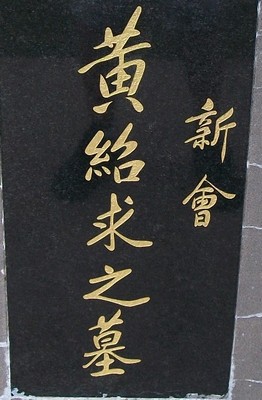 新會
黃紹求之墓